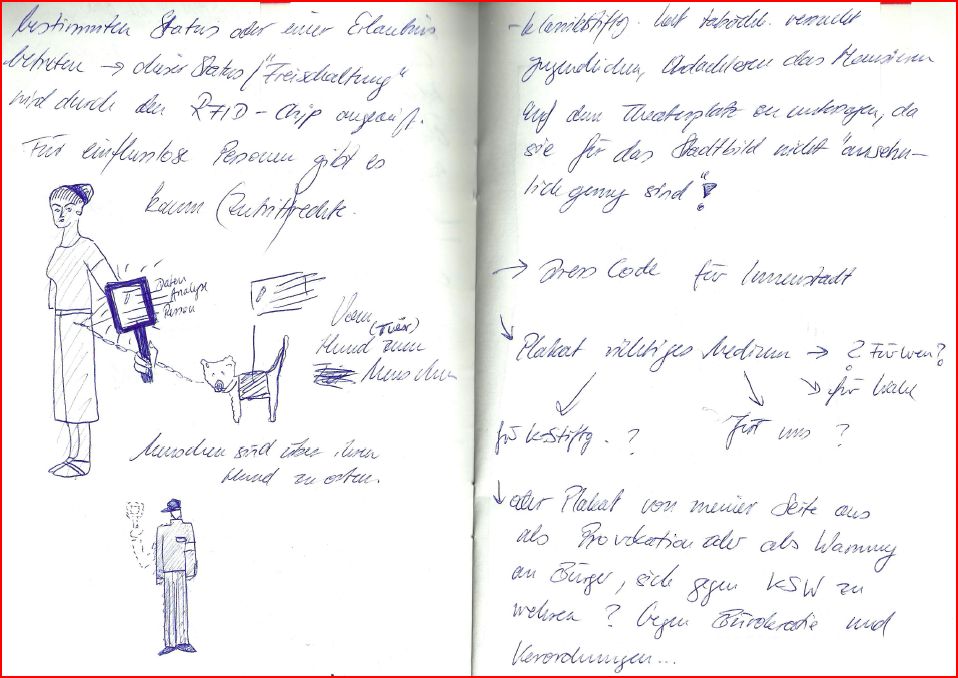 bestimmten Status oder einer Erlaubnis
betreten → dieser Status/"Freischaltung"
wird durch den RFID-Chip
Für einflusslose Personen gibt es
kaum Zutrittsrechte.
Daten
Analyse
Person
Vom
(Tier)
Hund zum
Menschen
Menschen sind über ihren
Hund zu orten.
- Klassikstiftg. hat versucht
Jugendlichen, Obdachlosen das
auf dem Theaterplatz zu untersagen, da
sie für das Stadtbild nicht "ansehn-
lich genug sind"!
→ Dress Code für Innenstadt
Plakat richtiges Medium → ? Für wen?
für
für K-Stiftg. ?
Für uns ?
oder Plakat von meiner Seite aus
als Provokation oder als Warnung
an Bürger, sich gegen KSW zu
wehren? Gegen Bürokratie und
Verordnungen...